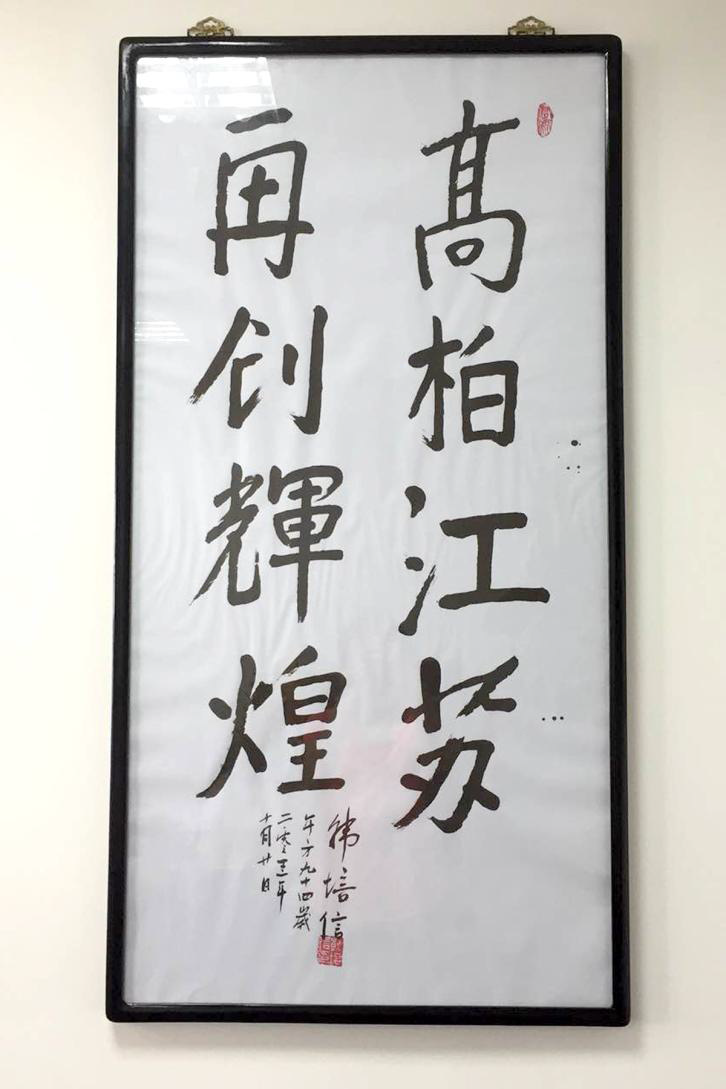 髙柏江苏
再创輝煌
韩培信
年方九十四歲
二零一三年
十月廿日